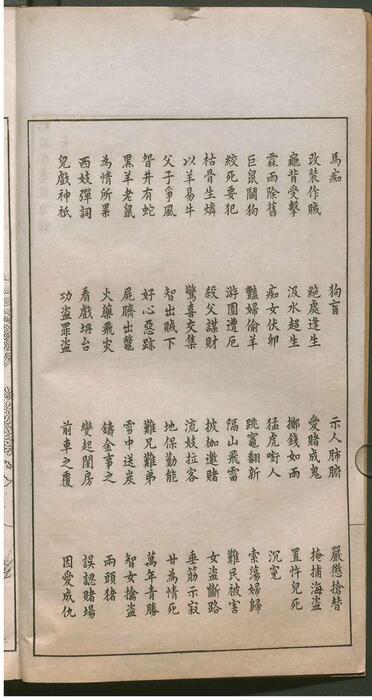 馬痴 狗盲 示人肺腑 嚴懲搶替
改裝作賊 絕處逢生 愛賭成鬼 掩捕海盜
龜背受擊 汲水超生 擲錢如雨 置忤兒死
霖雨除舊 痴女伏卵 猛虎嘢人 沉冤
巨鼠鬭狗 豔婦偷羊 跳竈翻新 索蕩婦歸
絞死要犯 游園遭厄 隔山飛雷 難民被害
枯骨生燐 殺父謀財 披枷邀賭 女盜斷路
以羊易牛 驚喜交集 流妓拉客 垂筋示寂
父子爭風 智出賊下 地保勤能 甘為情死
眢井有蛇 好心惡跡 難兄難弟 萬年青勝
黑羊老鼠 屍臍出鼈 雪中送炭 智女擒盜
為情所累 火藥飛災 鑄金事之 兩頭猪
西妓彈詞 看戲坍台 變起閨房 誤認賭場
兒戲神祇 功盜罪盜 前車之覆 因愛成仇